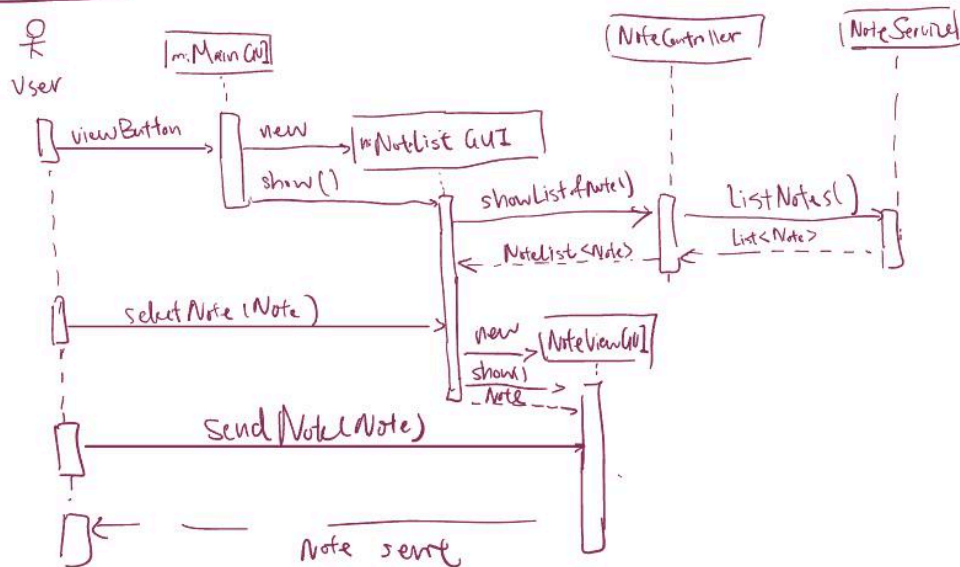 User
m:MainGUI
NoteController
NoteService
viewButton
new
n:NoteList GUI
show()
showListofNote()
ListNotes()
NoteList<Note>
List<Note>
selectNote(Note)
new
NoteViewGUI
show()
Note
send Note(Note)
Note sent